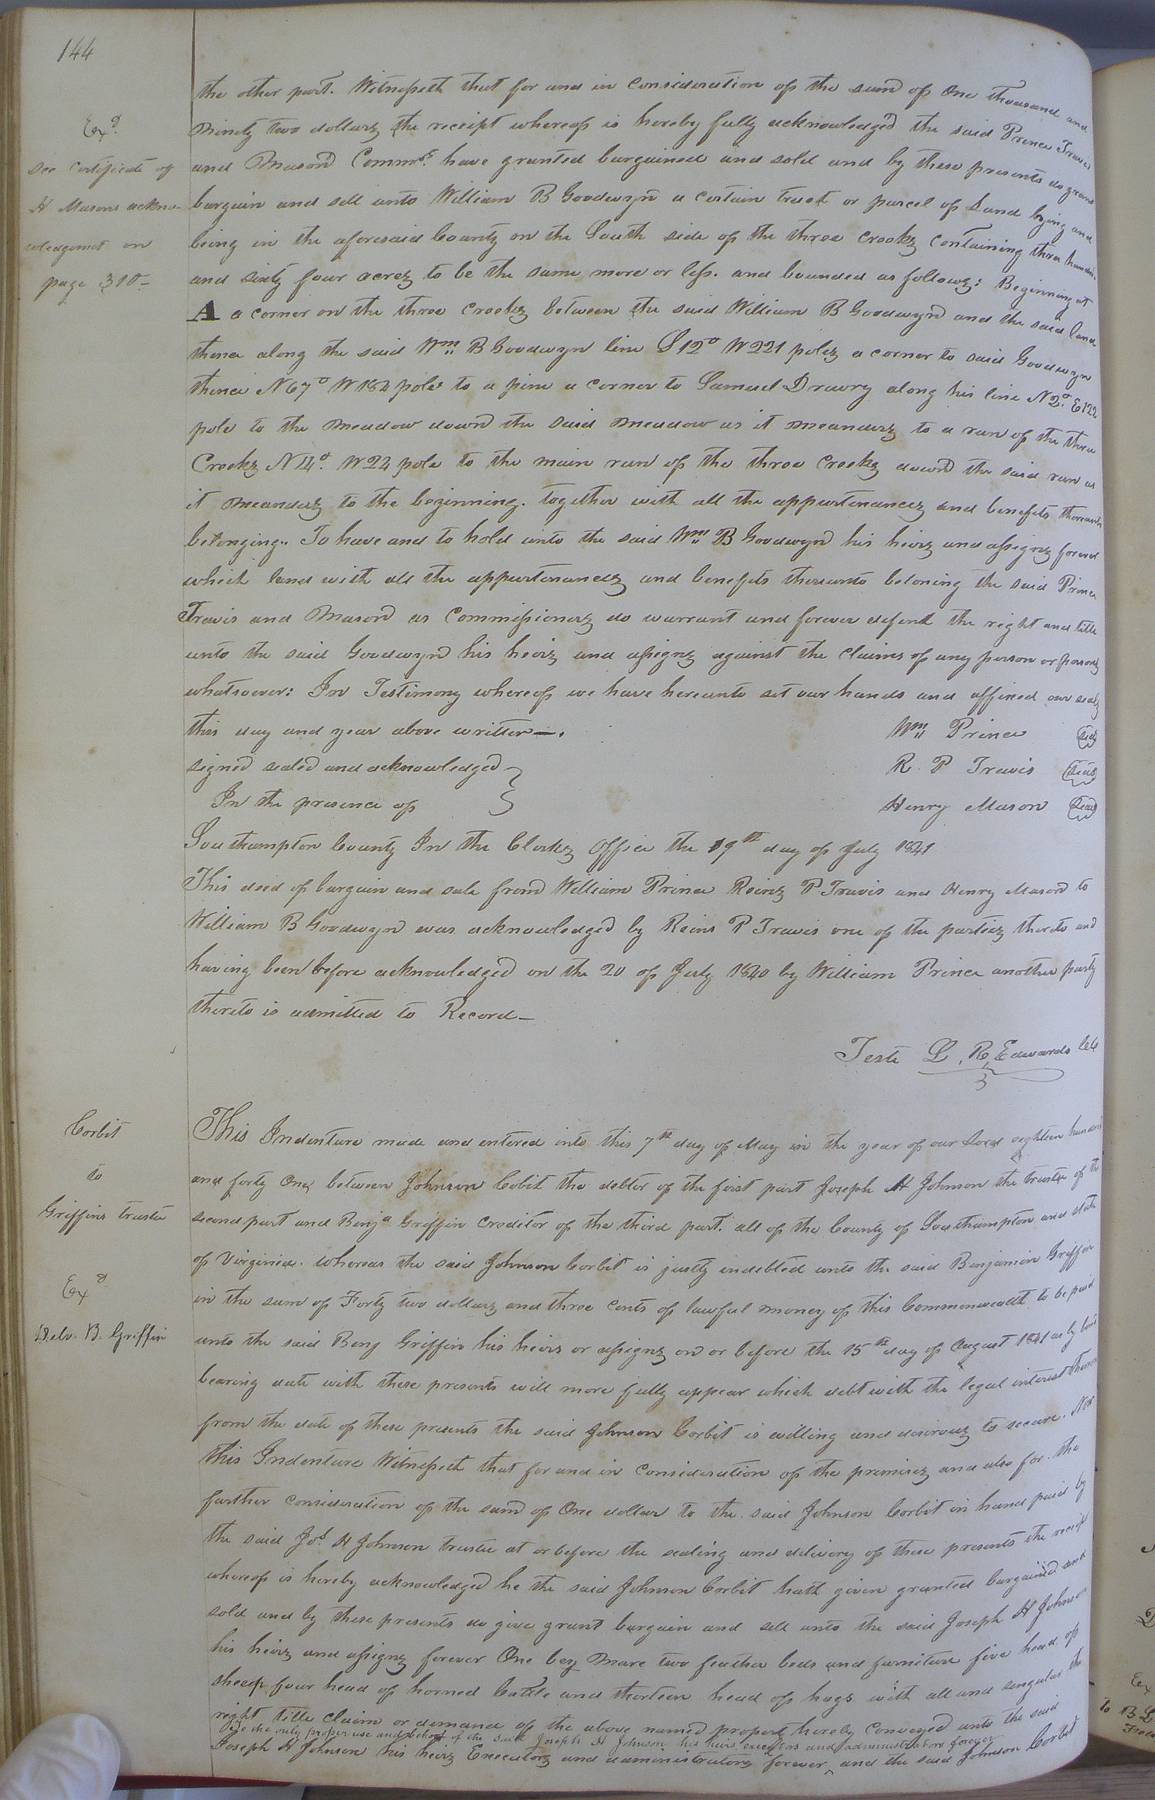 144
the other part. Witnesseth that for and in consideration of the sum of One thousand and
Ex.d
ninety two dollars the receipt whereof is hereby fully acknowledged the said Prince Travis
See Certificate of
and Mason Commrs. have granted bargained and sold and by these presents do grant
H Masons ackno
bargain and sell unto William B Goodwyn a certain tract or parcel of Land lying and
wledgement on
being in the aforesaid County on the South side of the three creeks containing three hundred
page 310-
and sixty four acres to be the same more or less. and bounded as follows: Beginning at
A a corner on the three creeks between the said William B Goodwyn and the said land
thence along the said Wm B Goodwyn line S 12° W 221 poles a corner to said Goodwyn
thence N 67° W 184 pole to a pine a corner to Samuel Drewry along his line N 2° E 122
pole to the meadow down the said meadow as it meanders to a run of the three
Creeks N 4° W 24 pole to the main run of the three creeks down the said run as
it meanders to the beginning. together with all the appurtenances and benefits thereunto
belonging.. To have and to hold unto the said Wm B Goodwyn his heirs and assigns forever
which land with all the appurtenances and benefits thereunto beloning the said Prince
Travis and Mason as Commissioners do warrant and forever defend the right and title
unto the said Goodwyn his heirs and assigns against the claims of any person or persons
whatsoever: In Testimony whereof we have hereunto set our hands and affixed our seals
this day and year above written—. Wm Prince Seal
signed sealed and acknowledged R. P Travis Seal
In the presence of Henry Mason Seal
Southampton County In the Clerks Office the 19th day of July 1841
This deed of bargain and sale from William Prince Reins P Travis and Henry Mason to
William B Goodwyn was acknowledged by Reins P Travis one of the parties thereto and
having been before acknowledged on the 20 of July 1840 by William Prince another party
thereto is admitted to Record—
Teste L. R, Edwards
Corbit
to
Griffins trustee
Ex.d
Delv. B. Griffin
This Indenture made and entered into this 7th day of May in the year of our Lord eighteen hundred
and forty One between Johnson Corbit the debtor of the first part Joseph H Johnson the trustee of the
second part and Benja Griffin Creditor of the third part. all of the County of Southampton and state
of Virginia. whereas the said Johnson Corbit is justly indebted unto the said Benjamin Griffin
in the sum of Forty two dollars and three cents of lawful money of this Commonwealth to be paid
unto the said Benj Griffin his heirs or assigns on or before the 15th day of August 1841 as by bond
bearing date with these presents will more fully appear which debt with the legal interest thereon
from the date of these presents the said Johnson Corbit is willing and desirous to secure. Now
this Indenture Witnesseth that for and in consideration of the premises and also for the
further consideration of the sum of One dollar to the said Johnson Corbit in hand paid by
the said Jos. H Johnson trustee at or before the sealing and delivery of these presents the receipt
whereof is hereby acknowledged he the said Johnson Corbit hath given granted bargained and
sold and by these presents do give grant bargain and sell unto the said Joseph H Johnson
his heirs and assigns forever One bay Mare two feather beds and furniture five head of
sheep four head of horned Cattle and thirteen head of hogs with all and singular the
right title claim or demand of the above named property hereby Conveyed unto the said
To the only proper use and behoof of the said Joseph H Johnson his heirs executors and administrators forever
Joseph H Johnson his heirs Executors and administrators forever and the said Johnson Corbit